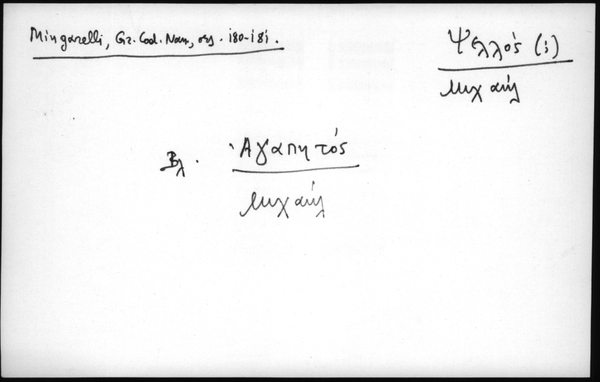 Mingarelli, Gr. Cod. Nan., σσ. 180-181.
Ψελλός (;)
Μιχαήλ
Βλ. Ἀγαπητός
Μιχαήλ